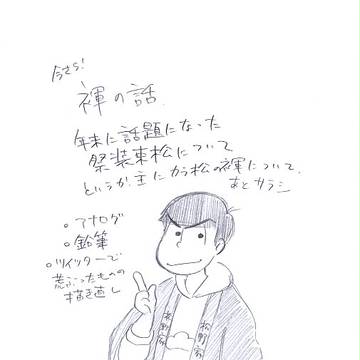 今さら!
褌の話
年末に話題になった
祭装束松について
というか主にカラ松の褌について。
あとサラシ
○アナログ
○鉛筆
○ツイッターで
荒ぶったものの
描き直し
松野家
松野家